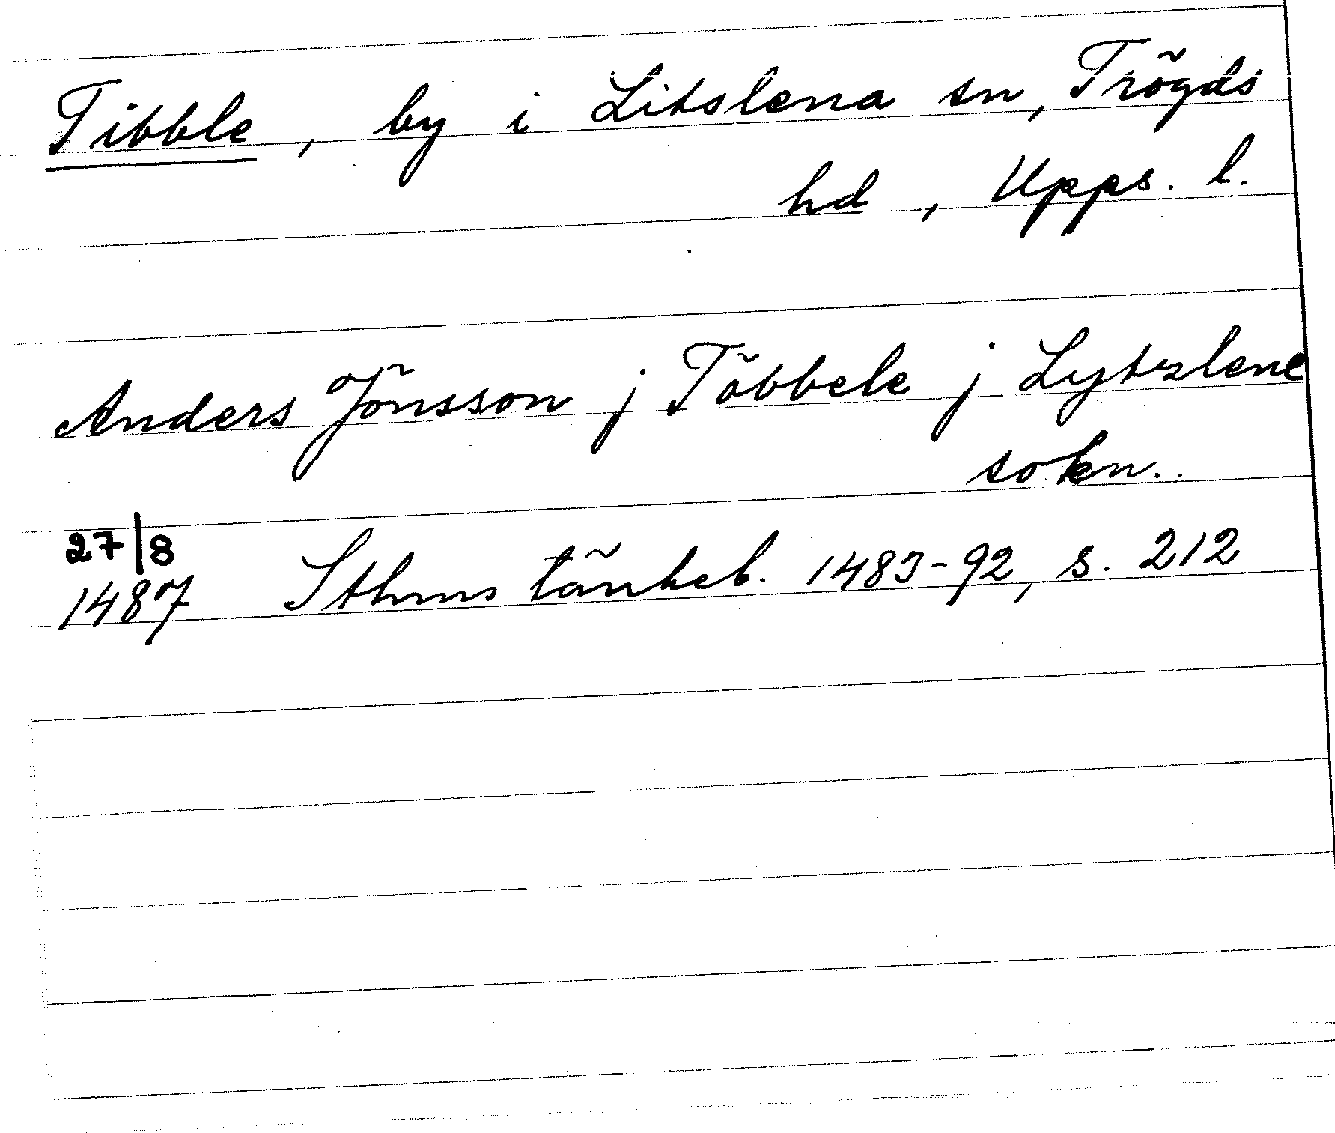 Tibble, by i Litslena sn, Trögds
hd, Upps. l.
Anders Jönsson j Többele j Lytzlene
sokn..
27/8
1487 Sthms tänkeb. 1483-92, s. 212